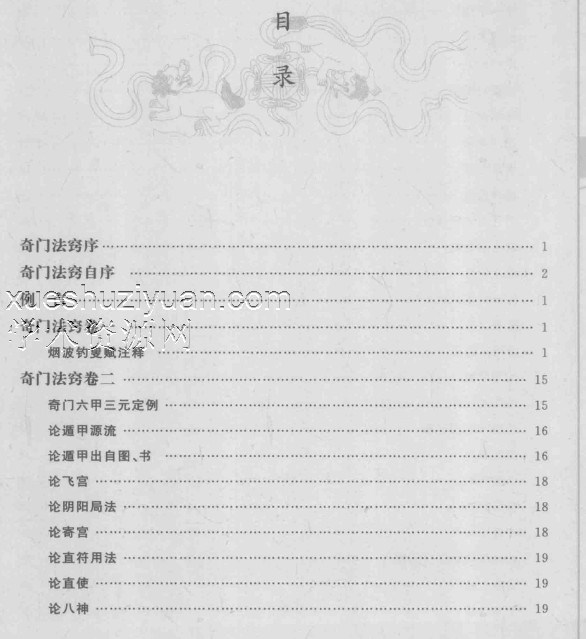 目
录
奇门法窍序 1
奇门法窍自序 2
例 1
xueshuziyuan.com
奇门法窍卷 1
学术资源网
烟波钓叟赋注释 1
奇门法窍卷二 15
奇门六甲三元定例 15
论遁甲源流 16
论遁甲出自图、书 16
论飞宫 18
论阴阳局法 18
论寄宫 18
论直符用法 19
论直使 19
论八神 19